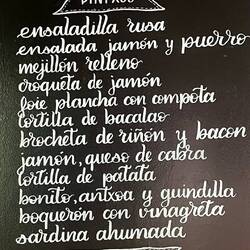 PINTXOS
ensaladilla rusa
ensalada jamón y puerro
mejillón relleno
croqueta de jamón
foie plancha con compota
tortilla de bacalao
brocheta de riñón y bacon
jamón, queso de cabra
tortilla de patata
bonito, antxoa y guindilla
boquerón con vinagreta
sardina ahumada